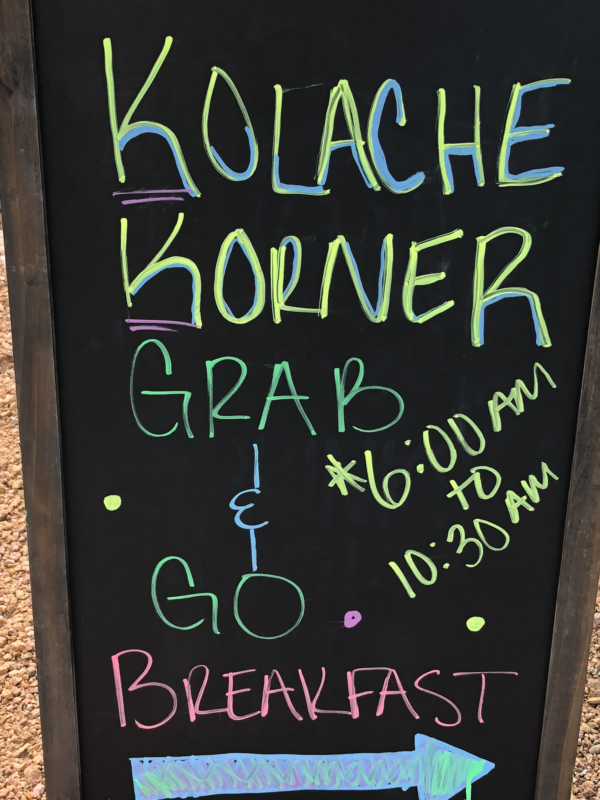 KOLACHE
KORNER
GRAB
&
GO
*6:00 AM
to
10:30 AM
BREAKFAST